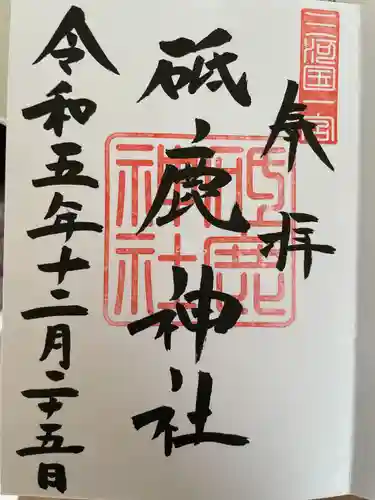 三河国一宮
奉拝
砥鹿神社
砥鹿神社
令和五年十二月二十五日